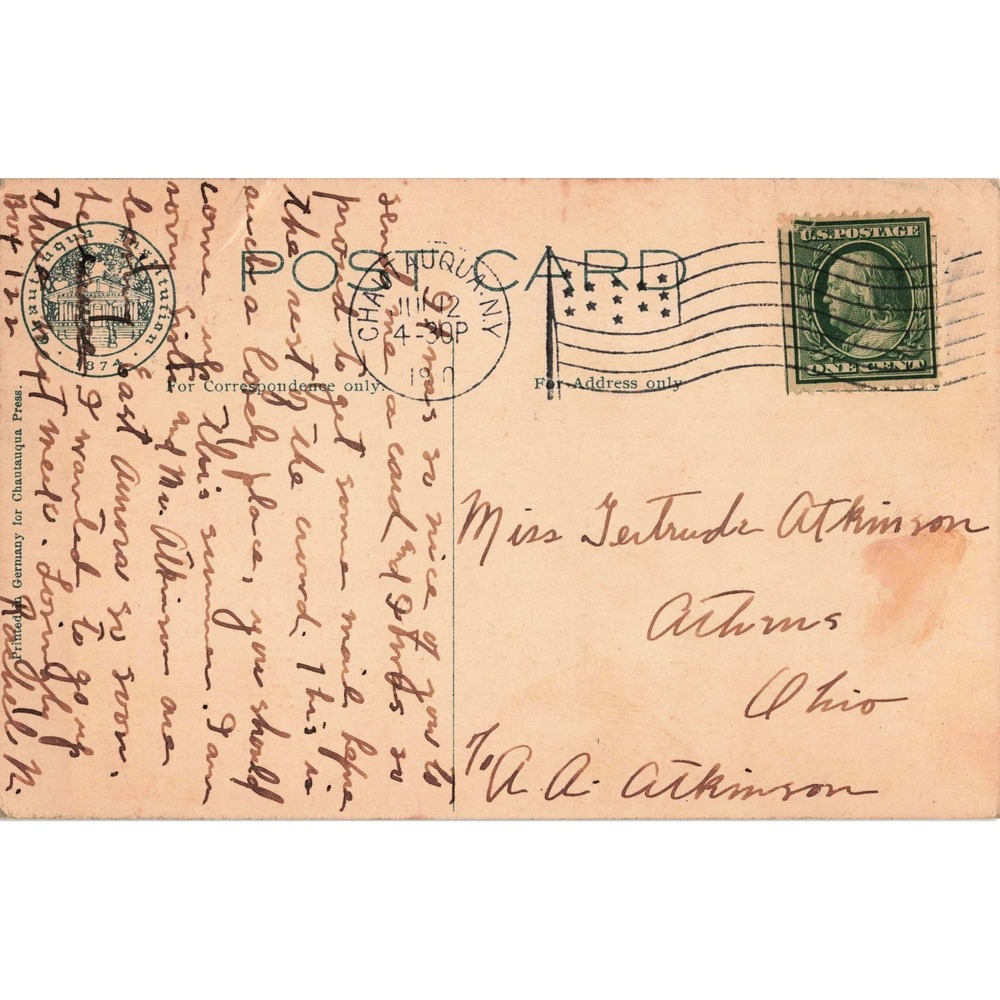 POST CARD
For Correspondence only.
For Address only
Chautauqua Institution
1874
Printed in Germany for Chautauqua Press.
CHAUTAUQUA. N.Y.
JUL 12
4-30P
1910
U.S. POSTAGE
ONE CENT
It was so nice of you to
send me a card and I was so
proud to get some mail before
the rest of the crowd. This is
such a lovely place, you should
come up this summer. I am
sorry and Mr. Atkinson are
East Amora so soon.
I wanted to go up
this next week. Lovingly
Rachel N.
Box 122
Miss Gertrude Atkinson
Athens
Ohio
℅ A. A. Atkinson